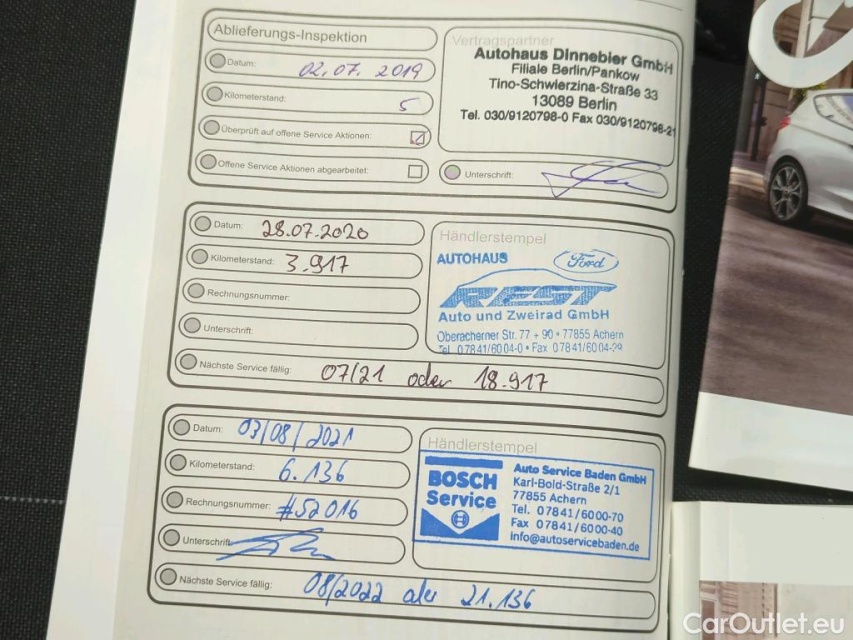 Ablieferungs-Inspektion
Datum: 02.07.2019
Kilometerstand: 5
Überprüft auf offene Service Aktionen:
Offene Service Aktionen abgearbeitet:
Vertragspartner
Autohaus Dinnebier GmbH
Filiale Berlin/Pankow
Tino-Schwierzina-Straße 33
13089 Berlin
Tel. 030/9120798-0 Fax 030/9120798-21
Unterschrift:
Datum: 28.07.2020
Kilometerstand: 3.917
Rechnungsnummer:
Unterschrift:
Nächste Service fällig: 07/21 oder 18.917
Händlerstempel
AUTOHAUS Ford
REST
Auto und Zweirad GmbH
Oberacherner Str. 77 + 90 • 77855 Achern
Tel. 07841/6004-0 • Fax 07841/6004-29
Datum: 03/08/2021
Kilometerstand: 6.136
Rechnungsnummer: #52016
Unterschrift:
Nächste Service fällig: 08/2022 21.136
Händlerstempel
BOSCH
Service
Auto Service Baden GmbH
Karl-Bold-Straße 2/1
77855 Achern
Tel. 07841/6000-70
Fax 07841/6000-40
info@autoservicebaden.de
CarOutlet.eu